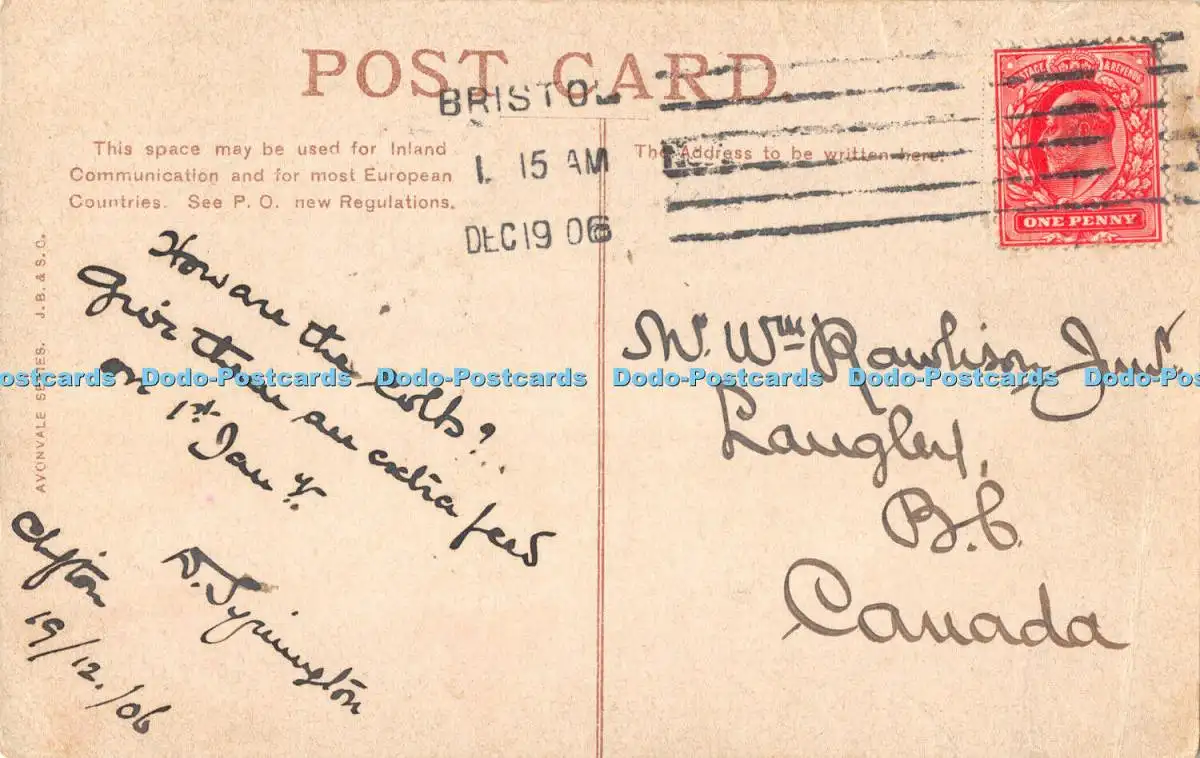 POST CARD.
BRISTOL
1 15 AM
DEC 19 06
This space may be used for Inland
Communication and for most European
Countries. See P. O. new Regulations.
The Address to be written here.
POSTAGE & REVENUE
ONE PENNY
AVONVALE SERIES. J. B. & S. C.
How are the colts?
Give them an extra feed
on 1st Jan y.
D. Symington
Clifton
19/12./06
Mr. Wm Rawlison Junr.
Langley,
B.C.
Canada
Dodo-Postcards Dodo-Postcards Dodo-Postcards Dodo-Postcards Dodo-Postcards Dodo-Postcards